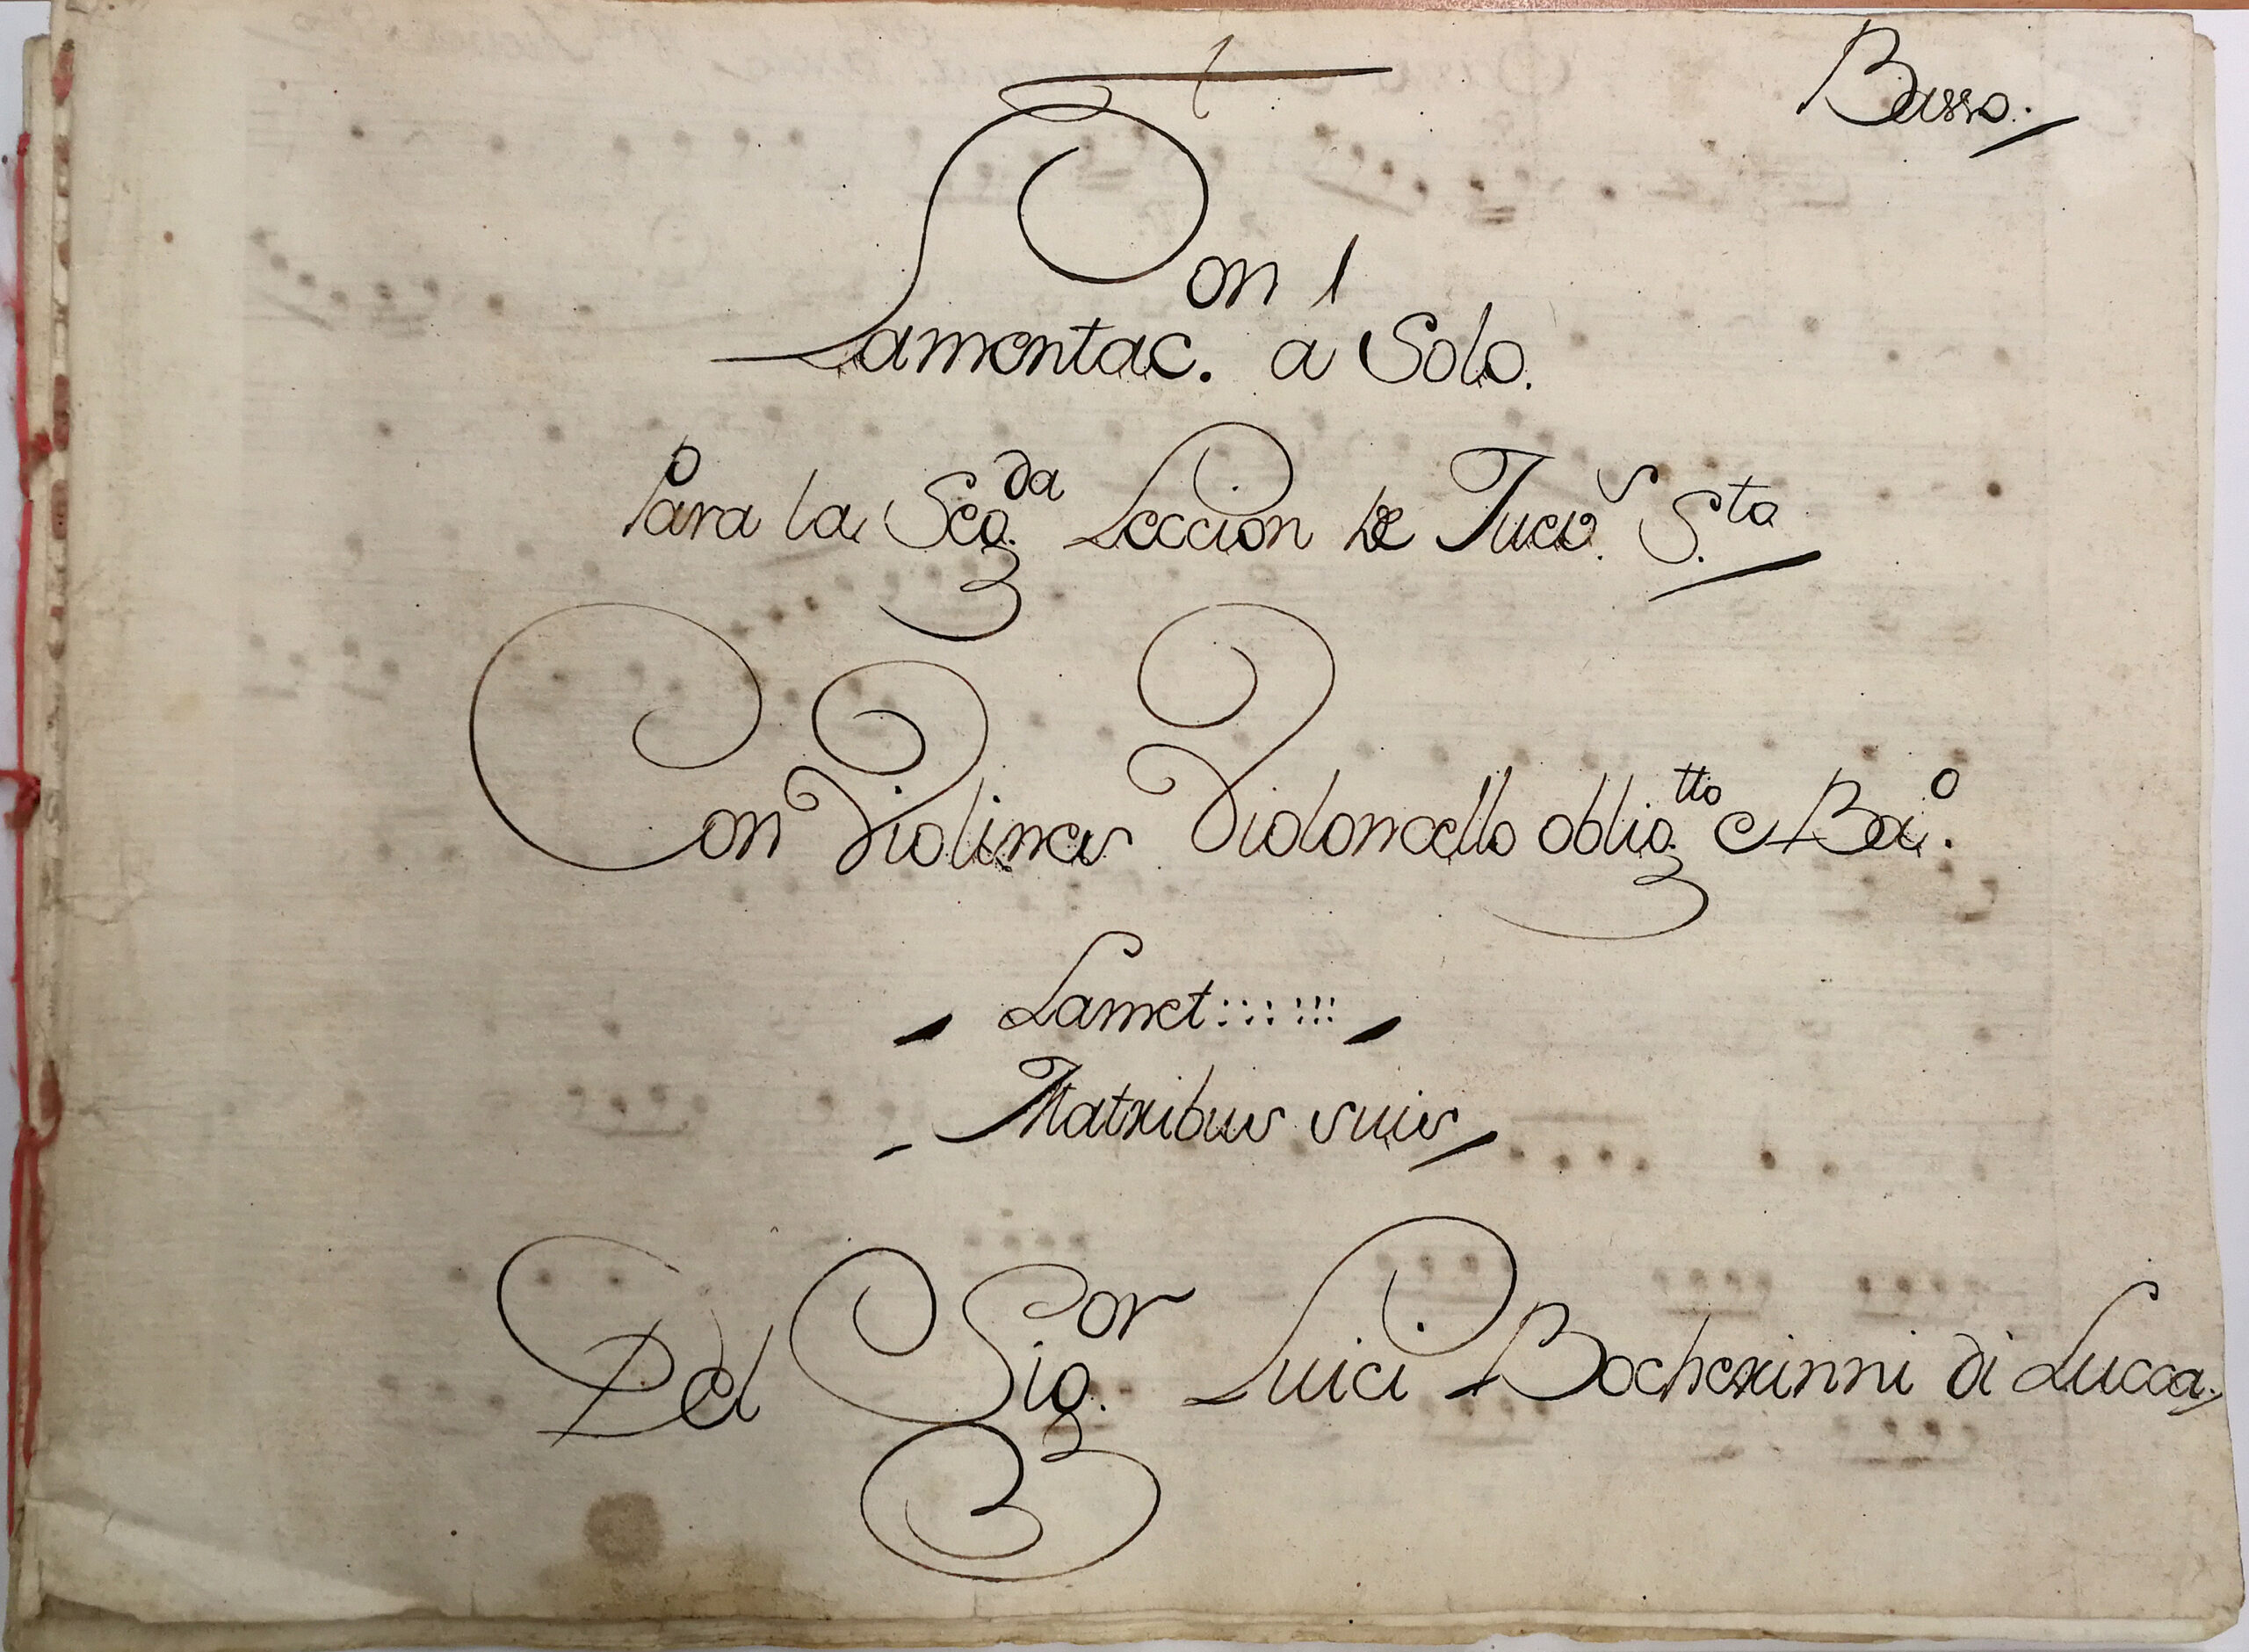 Basso.
Ton 1
Lamentac. a Solo.
Para la Seg.da Leccion de Juev.s S.ta
Con Violines Violoncello oblig.tto e Bax.o
Lamet::::::
Matribus suis
Del Sig.or Luici Bocherinni di Lucca.